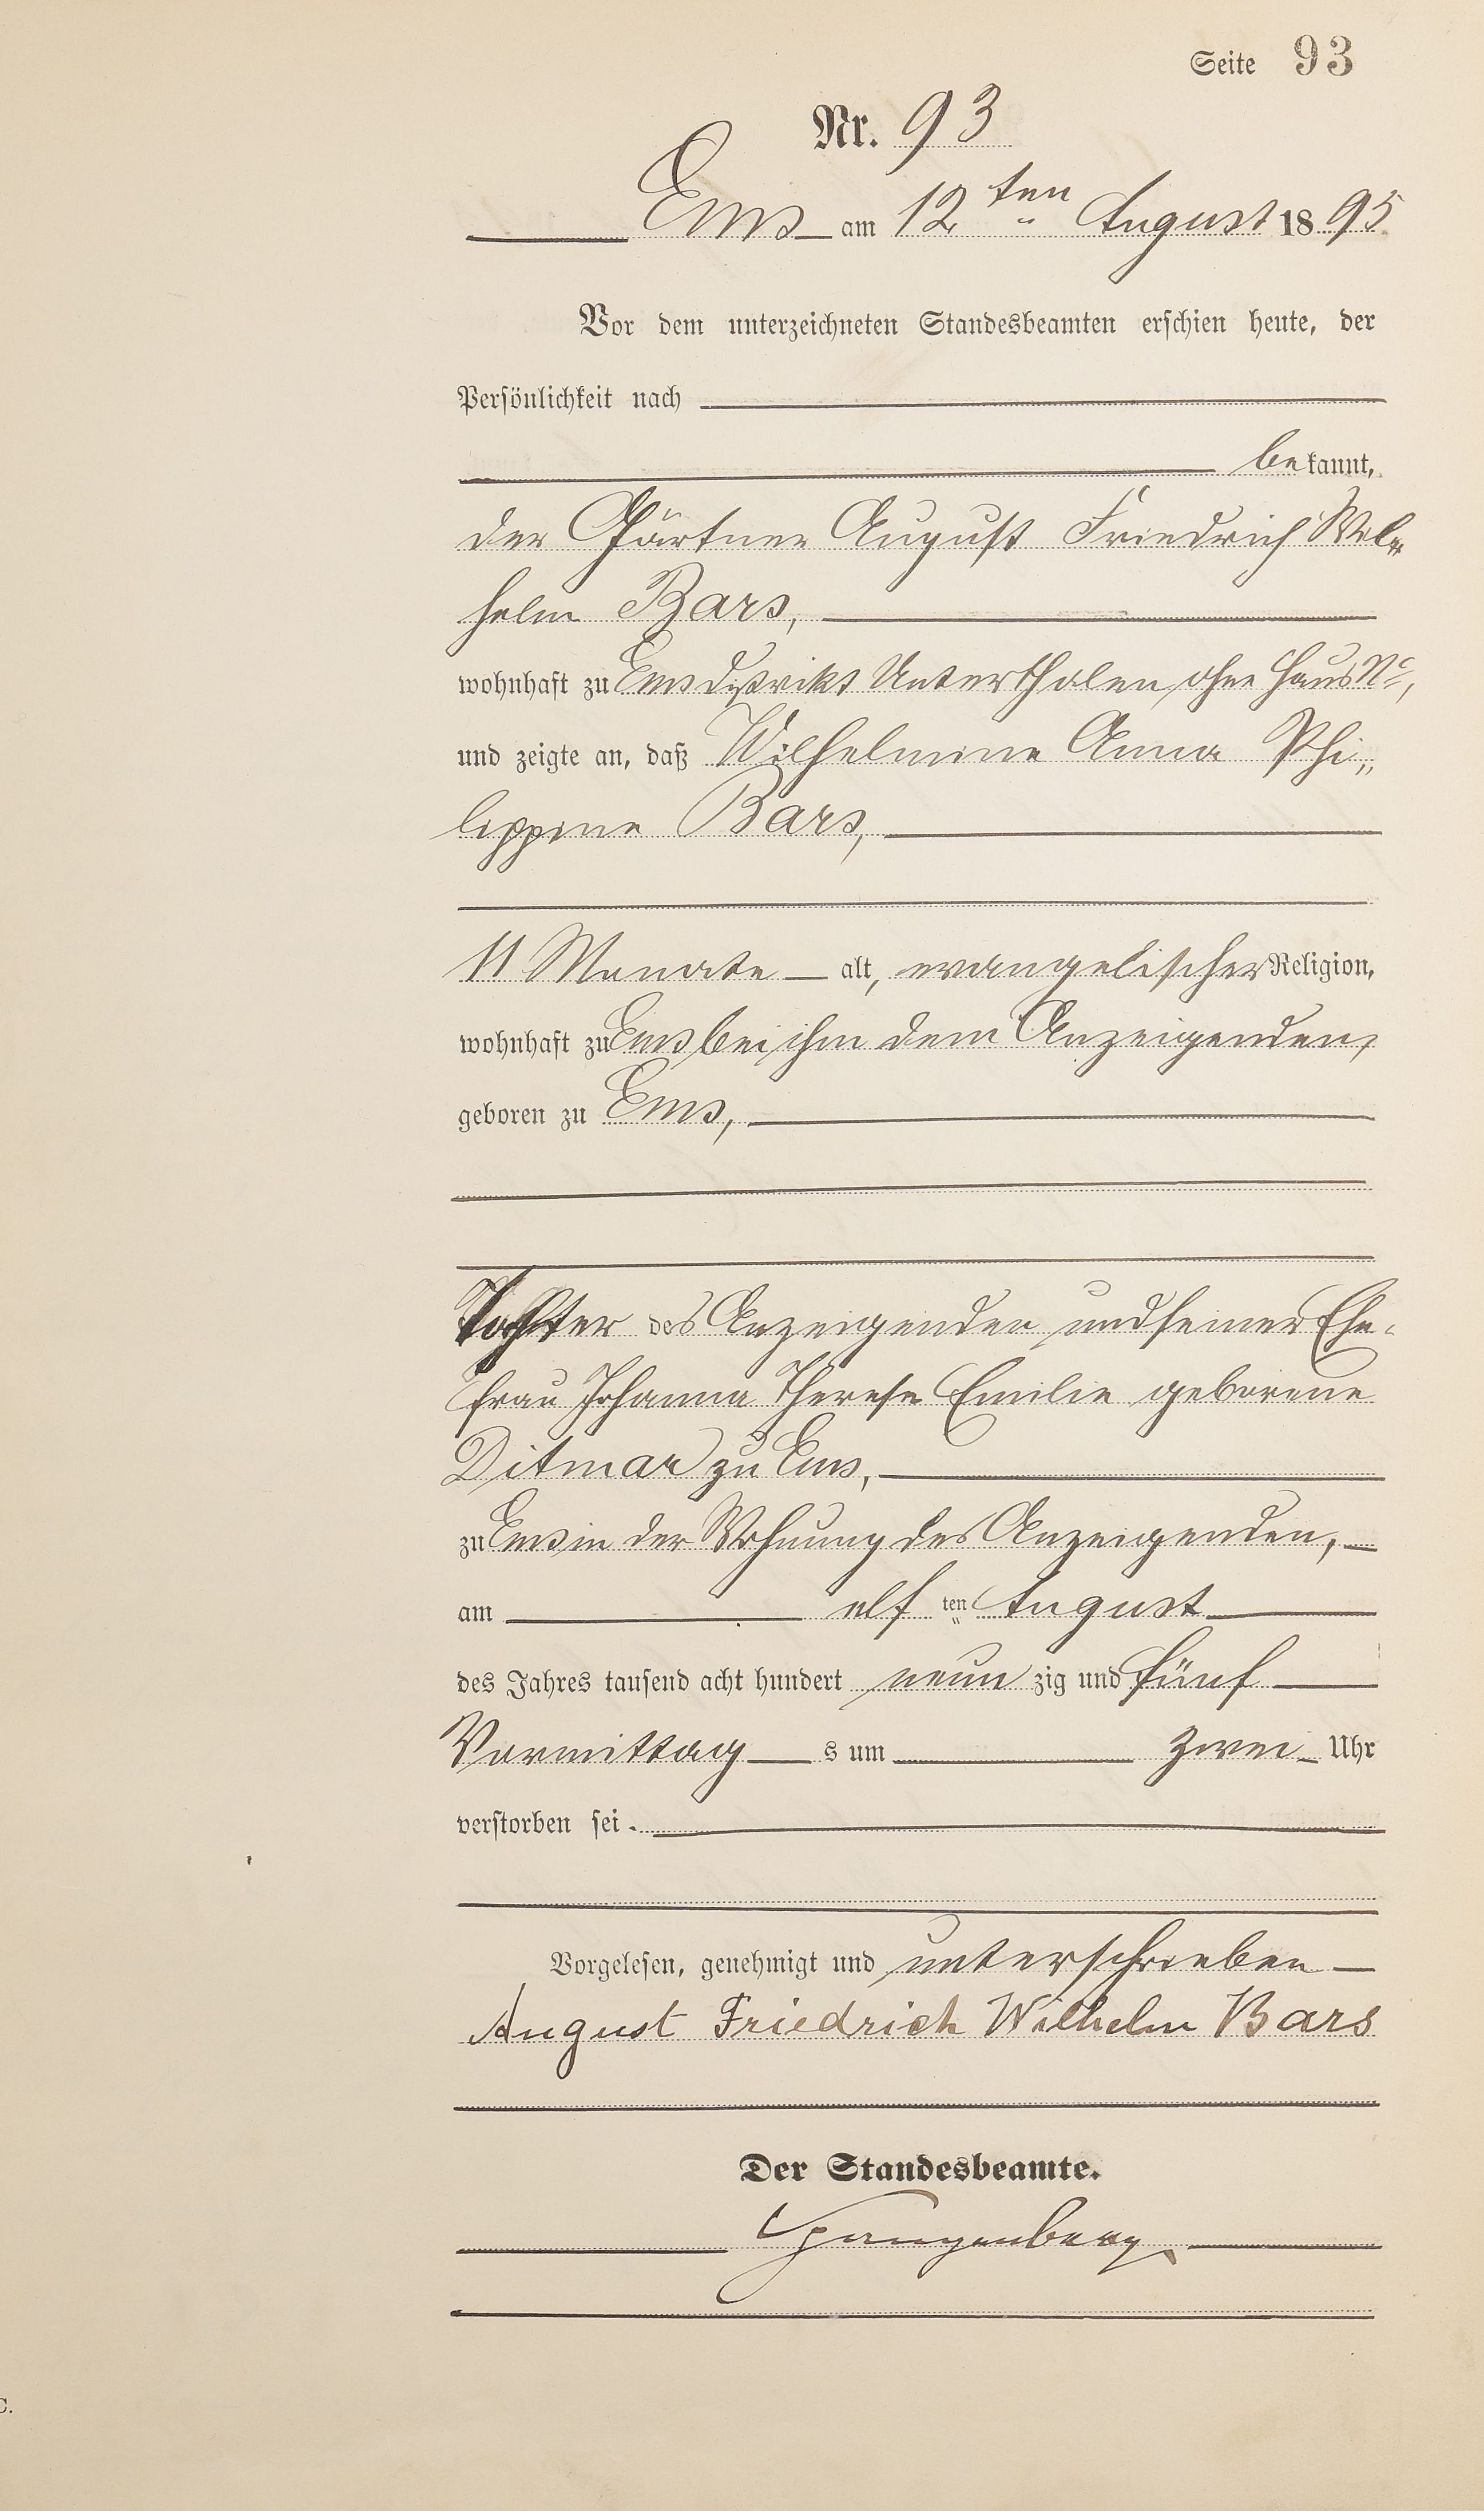 Seite 93
Nr. 93
Ems am 12ten August 1895
Vor dem unterzeichneten Standesbeamten erschien heute, der
Persönlichkeit nach
bekannt,
der Gärtner August Friedrich Wil„
helm Bars,
wohnhaft zu Ems Distrikt Unterthalen ohne Haus No,
und zeigte an, daß Wilhelmine Anna Phi„
lippine Bars,
11 Monate alt, evangelischer Religion,
wohnhaft zu Ems bei ihm dem Anzeigenden,
geboren zu Ems,
Tochter des Anzeigenden und seiner Ehe-
frau Johanna Therese Emilie geborene
Ditmar zu Ems,
zu Ems in der Wohnung des Anzeigenden,
am elf ten August
des Jahres tausend acht hundert neun zig und fünf
Vormittag s um zwei Uhr
verstorben sei.
Vorgelesen, genehmigt und unterschrieben
August Friedrich Wilhelm Bars
Der Standesbeamte.
Spangenberg
C.